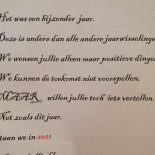 Het was een bijzonder jaar.
Deze is anders dan alle andere jaarwisselinge
We wensen jullie alleen maar positieve dingen
We kunnen de toekomst niet voorspellen.
MAAR willen jullie toch iets vertellen.
Net zoals dit jaar,
staan we in 2021